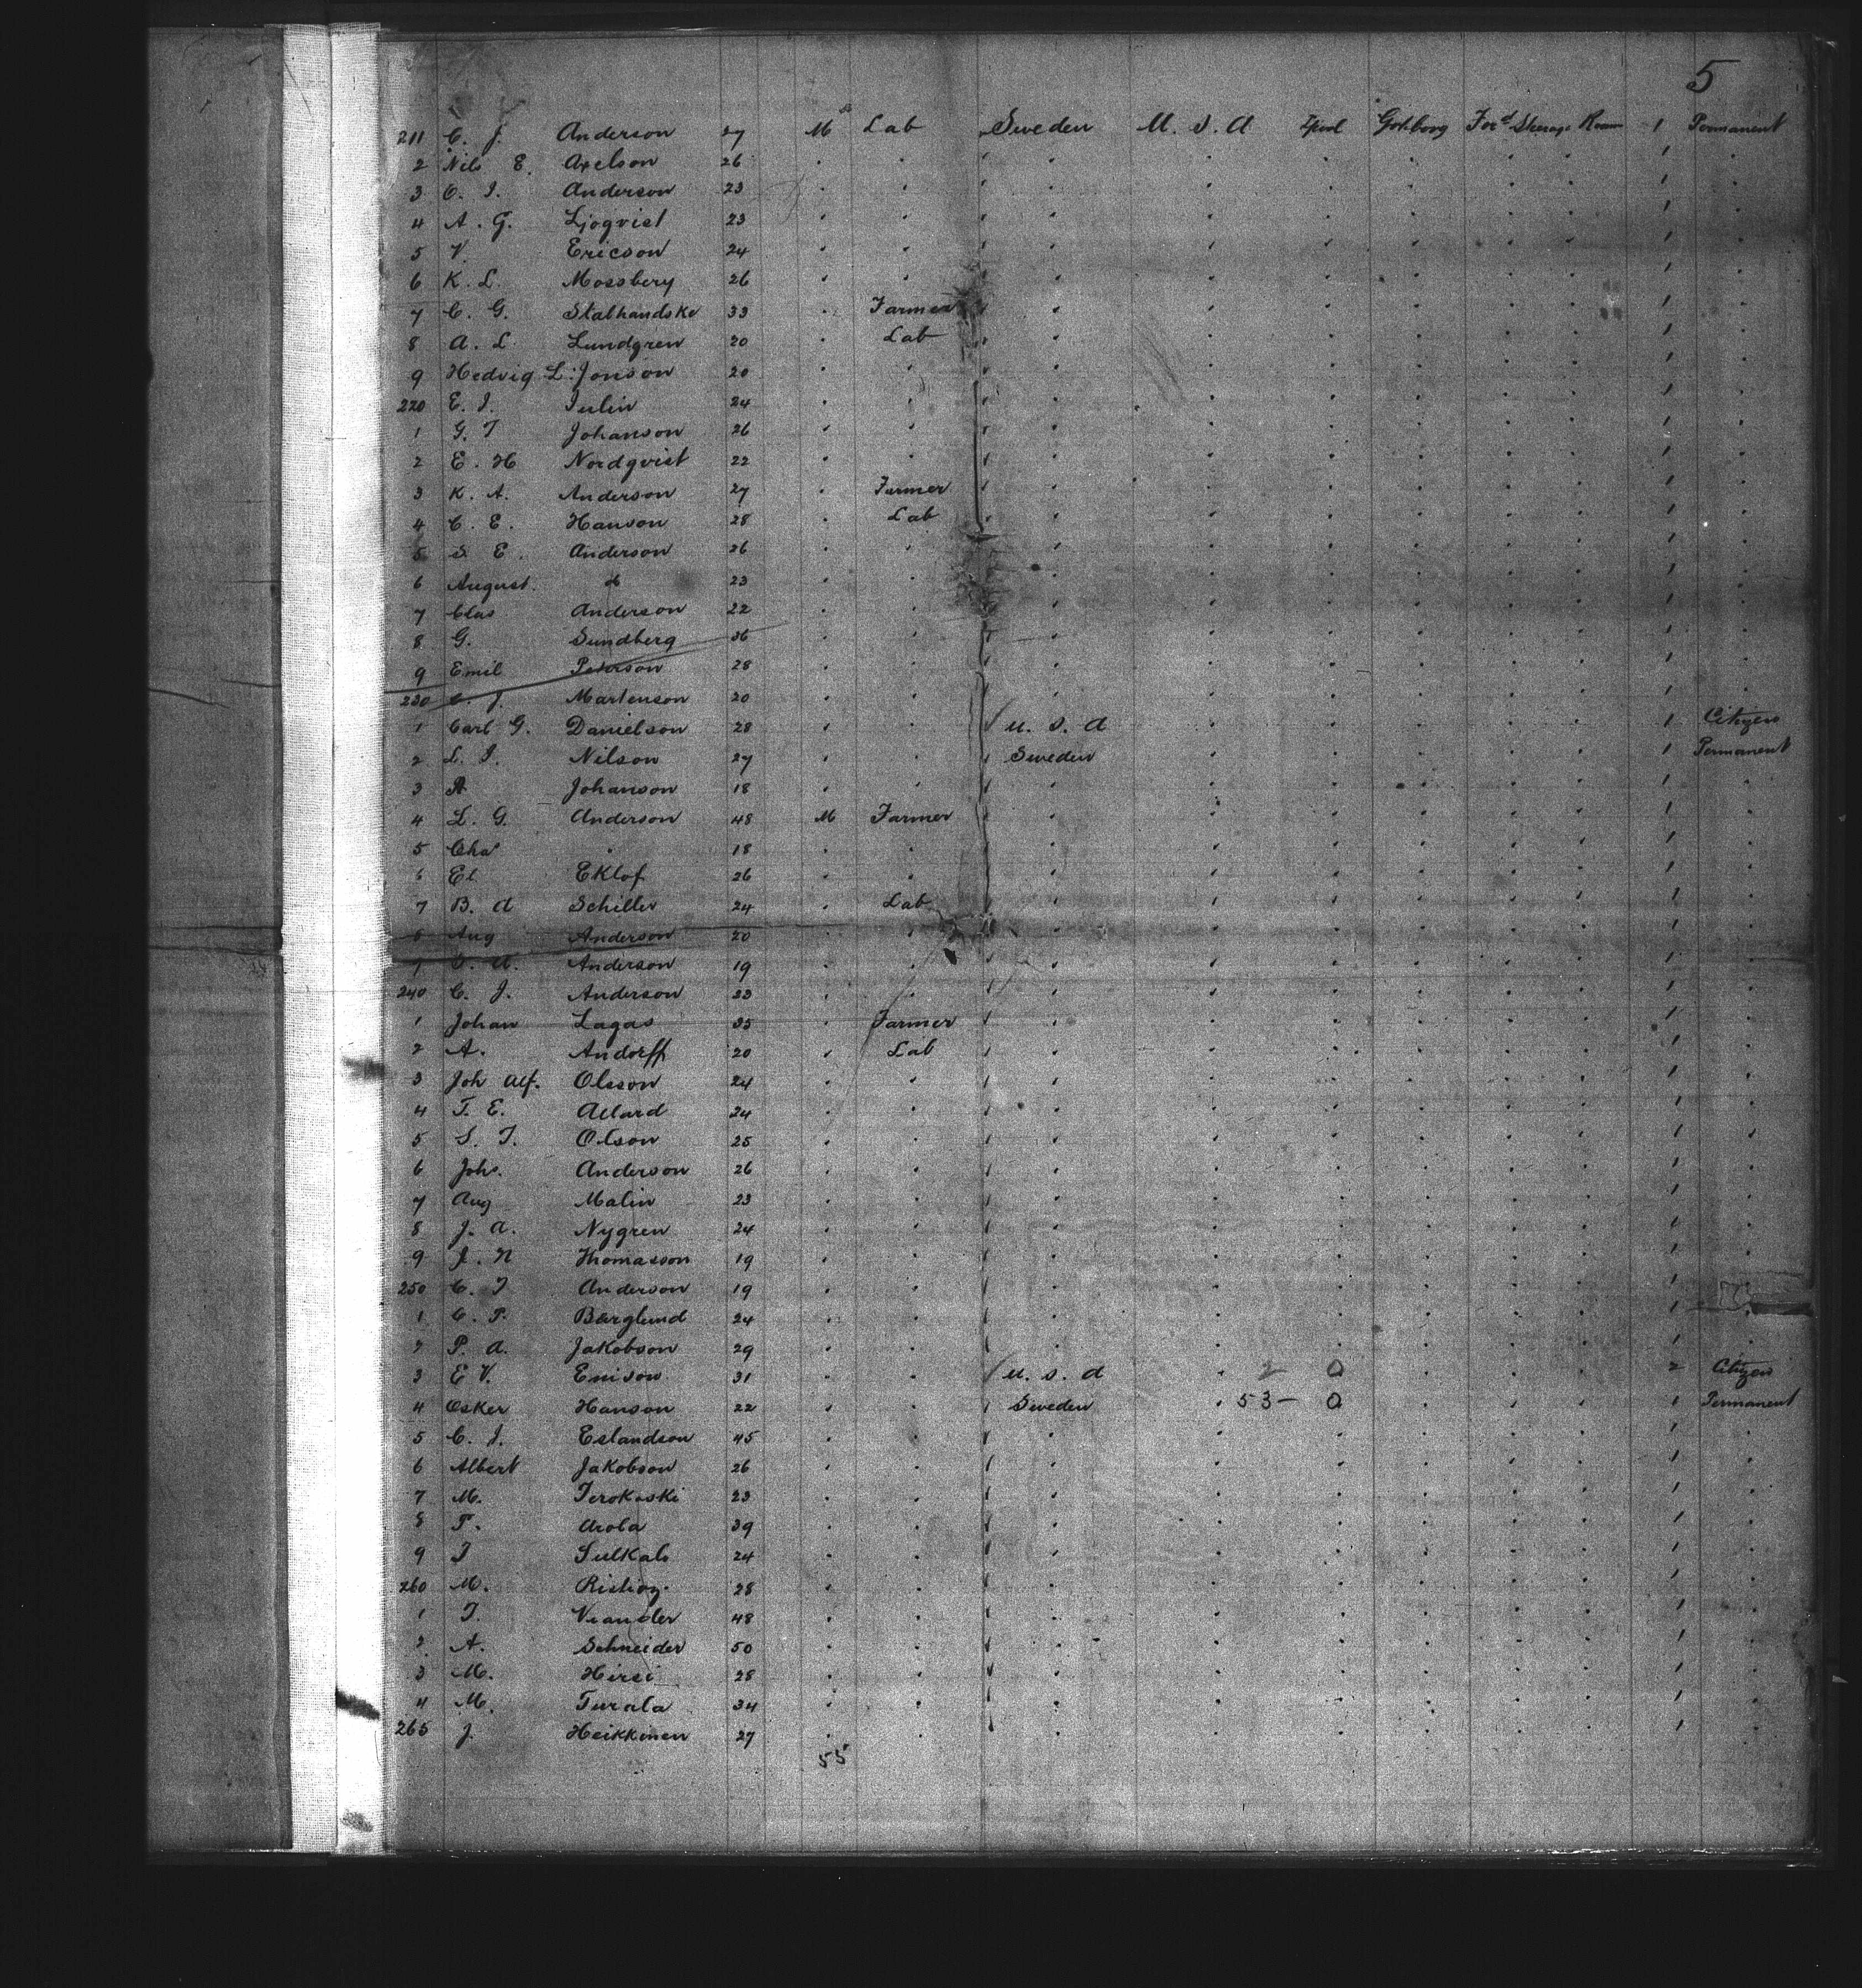 5
211 C. J. Anderson 27 M Lab Sweden U. S. A Lpool Gotborg For'd Steerage Room 1 Permanent
2 Nils E. Axelson 26 1
3 C. J. Anderson 23 1
4 A. G. Ljogvist 23 1
5 V. Ericson 24 1
6 K. L. Mossberg 26 1
7 C. G. Stalhandske 33 Farmer 1
8 A. L. Lundgren 20 Lab 1
9 Hedvig L. Jonson 20 1
220 E. J. Julin 24 1
1 G. T Johanson 26 1
2 E. H Nordqvist 22 1
3 K. A. Anderson 27 Farmer 1
4 C. E. Hanson 28 Lab 1
5 S. E. Anderson 26 1
6 August do 23 1
7 Clas Anderson 22 1
8 G. Sundberg 36 1
9 Emil Peterson 28 1
230 C. J. Martenson 20 1
1 Carl G. Danielson 28 U. S. A 1 Citizen
2 L. J. Nilson 27 Sweden 1 Permanent
3 A Johanson 18 1
4 L. G. Anderson 48 M Farmer 1
5 Chas " 18 1
6 El Eklof 26 1
7 B. A Schiller 24 Lab 1
8 Aug Anderson 20 1
9 Anderson 19 1
240 C. J. Anderson 23 1
1 Johan Lagas 35 Farmer 1
2 A. Andorff 20 Lab 1
3 Joh Alf. Olsson 24 1
4 T. E. Allard 24 1
5 S. T. Olson 25 1
6 Johs. Anderson 26 1
7 Aug Malin 23 1
8 J. A. Nygren 24 1
9 J. N Thomasson 19 1
250 C. J Anderson 19 1
1 C. P. Berglund 24 1
2 P. A. Jakobson 29 1
3 E V. Enison 31 U. S. A 2 0 2 Citizen
4 Osker Hanson 22 Sweden 53- 0 1 Permanent
5 C. J. Eslandson 45 1
6 Albert Jakobson 26 1
7 M. Terokoski 23 1
8 T. Arola 39 1
9 J Sulkala 24 1
260 M. 28 1
1 J. 48 1
2 A. Schneider 50 1
3 M. Hirsi 28 1
4 M. Turala 34 1
265 J. Heikkinen 27 1
55